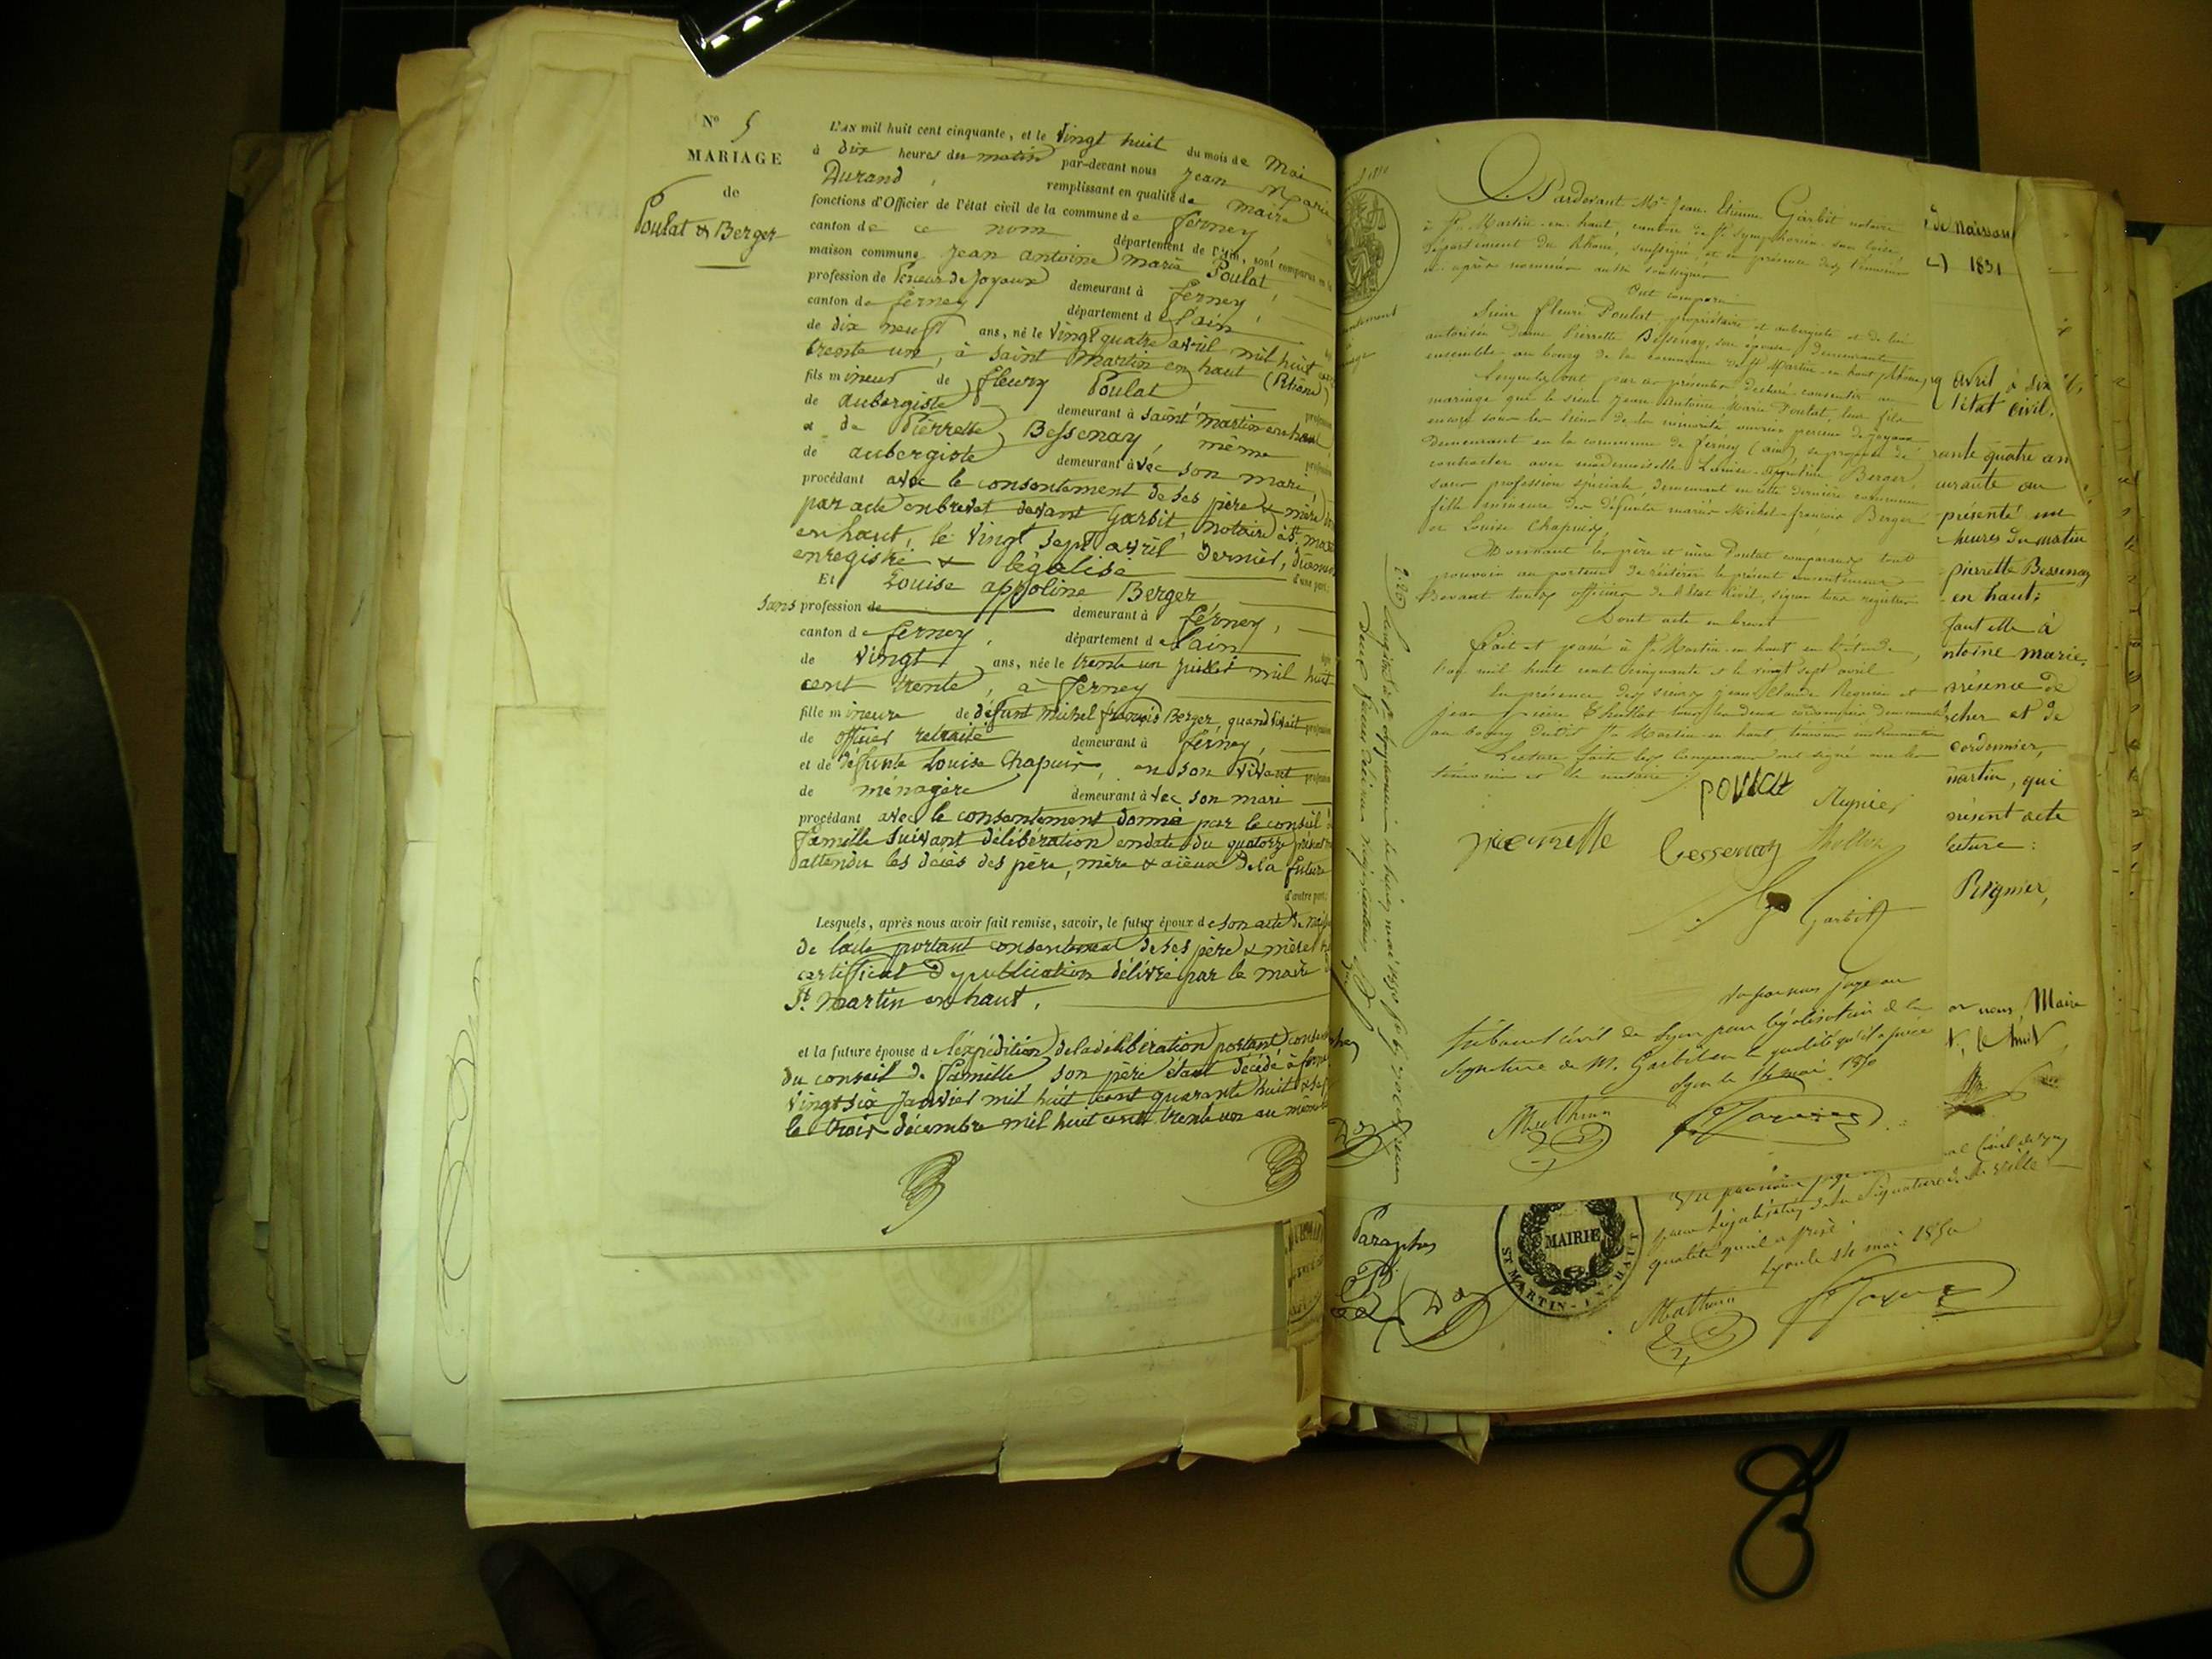 N° 5
MARIAGE
de
Poulat & Berger
L'AN mil huit cent cinquante, et le Vingt huit du mois de Mai
à dix heures du matin par-devant nous Jean Marie
Durand, remplissant en qualité de maire
fonctions d'Officier de l'état civil de la commune de ferney
canton de ce nom département de l'Ain, sont comparus en la
maison commune Jean antoine marie Poulat,
profession de Perceur de Joyaux demeurant à ferney,
canton de ferney département de l'ain
de dix neuf ans, né le Vingt quatre avril mil huit cent
trente un, à saint Martin en haut (Rhône)
fils mineur de fleury Poulat profession
de aubergiste demeurant à saint Martin en haut
et de Pierrette Bessenay, même profession
de aubergiste demeurant avec son mari,
procédant avec le consentement de ses père & mère
par acte en brevet devant Garbit, notaire à St. Martin
en haut, le Vingt sept avril dernier, dûment
enregistré & légalisé d'une part;
Et Louise appoline Berger
sans profession de demeurant à ferney,
canton de ferney, département de l'ain
de Vingt ans, née le trente un juillet mil huit
cent trente, à ferney
fille mineure de défunt Michel françois Berger, quand vivait profession
de officier retraité demeurant à ferney,
et de défunte Louise Chapuis, en son Vivant profession
de ménagère demeurant avec son mari
procédant avec le consentement donné par le conseil de
famille suivant délibération en date du quatorze présent
attendu les décès des père, mère & aïeux de la future
d'autre part;
Lesquels, après nous avoir fait remise, savoir, le futur époux de son acte de
de l'acte portant consentement de ses père & mère
certificat de publication délivré par le maire
St. Martin en haut.
et la future épouse de l'expédition de la délibération portant
du conseil de famille son père étant décédé à
Vingt six Janvier mil huit cent quarante huit &
le trois décembre mil huit cent trente un au même
Pardevant Me. Jean Etienne Garbit notaire
à St. Martin en haut, canton de St. Symphorien sur Coise,
département du Rhône, soussigné et en présence des témoins
ci après nommés aussi soussignés
Ont comparu
Sieur fleuri Poulat propriétaire et aubergiste et de lui
autorisée Dame Pierrette Bessenay, son épouse, demeurants
ensemble au bourg de la commune de St. Martin en haut
Lesquels ont par ces présentes déclaré consentir au
mariage que le sieur Jean Antoine Marie Poulat, leur fils
encore sous les liens de la minorité ouvrier perceur de joyaux
demeurant en la commune de ferney (ain) se propose de
contracter avec mademoiselle Louise Appoline Berger,
sans profession spéciale, demeurant en cette dernière commune
fille mineure des défunts mariés Michel françois Berger
et Louise Chapuis
Donnant les père et mère Poulat comparants tout
pouvoir au porteur de réitérer le présent consentement
Devant tous officiers de l'Etat Civil, signer tous registres
Dont acte en brevet
Fait et passé à St. Martin en haut en l'étude,
l'an mil huit cent cinquante et le vingt sept avril
En présence des sieurs Jean Claude Regnier et
Jean Pierre Thollot tous les deux cordonniers demeurants
au bourg dudit St. Martin en haut, témoins instrumentaires
Lecture faite les comparants ont signé avec les
témoins et le notaire.
POULAT Regnier
pierrette bessenay Thollot
Garbit
Vu par nous juge au
tribunal civil de Lyon pour légalisation de la
signature de M. Garbit en la qualité qu'il a prise
Lyon le 14 mai 1850
Mathieu
de naissance
1831
avril à six
l'état civil.
rante quatre an
présenté un
heures du matin
pierrette Bessenay
en haut;
faut elle à
ntoine marie,
présence de
cher et de
cordonnier,
martin, qui
présent acte
lecture:
Regnier,
nous, Maire
Paraphes
MAIRIE
ST MARTIN-EN-HAUT
pour légalisation de la signature de M.
qualité qu'il a prise
Lyon le 14 mai 1850
Mathieu